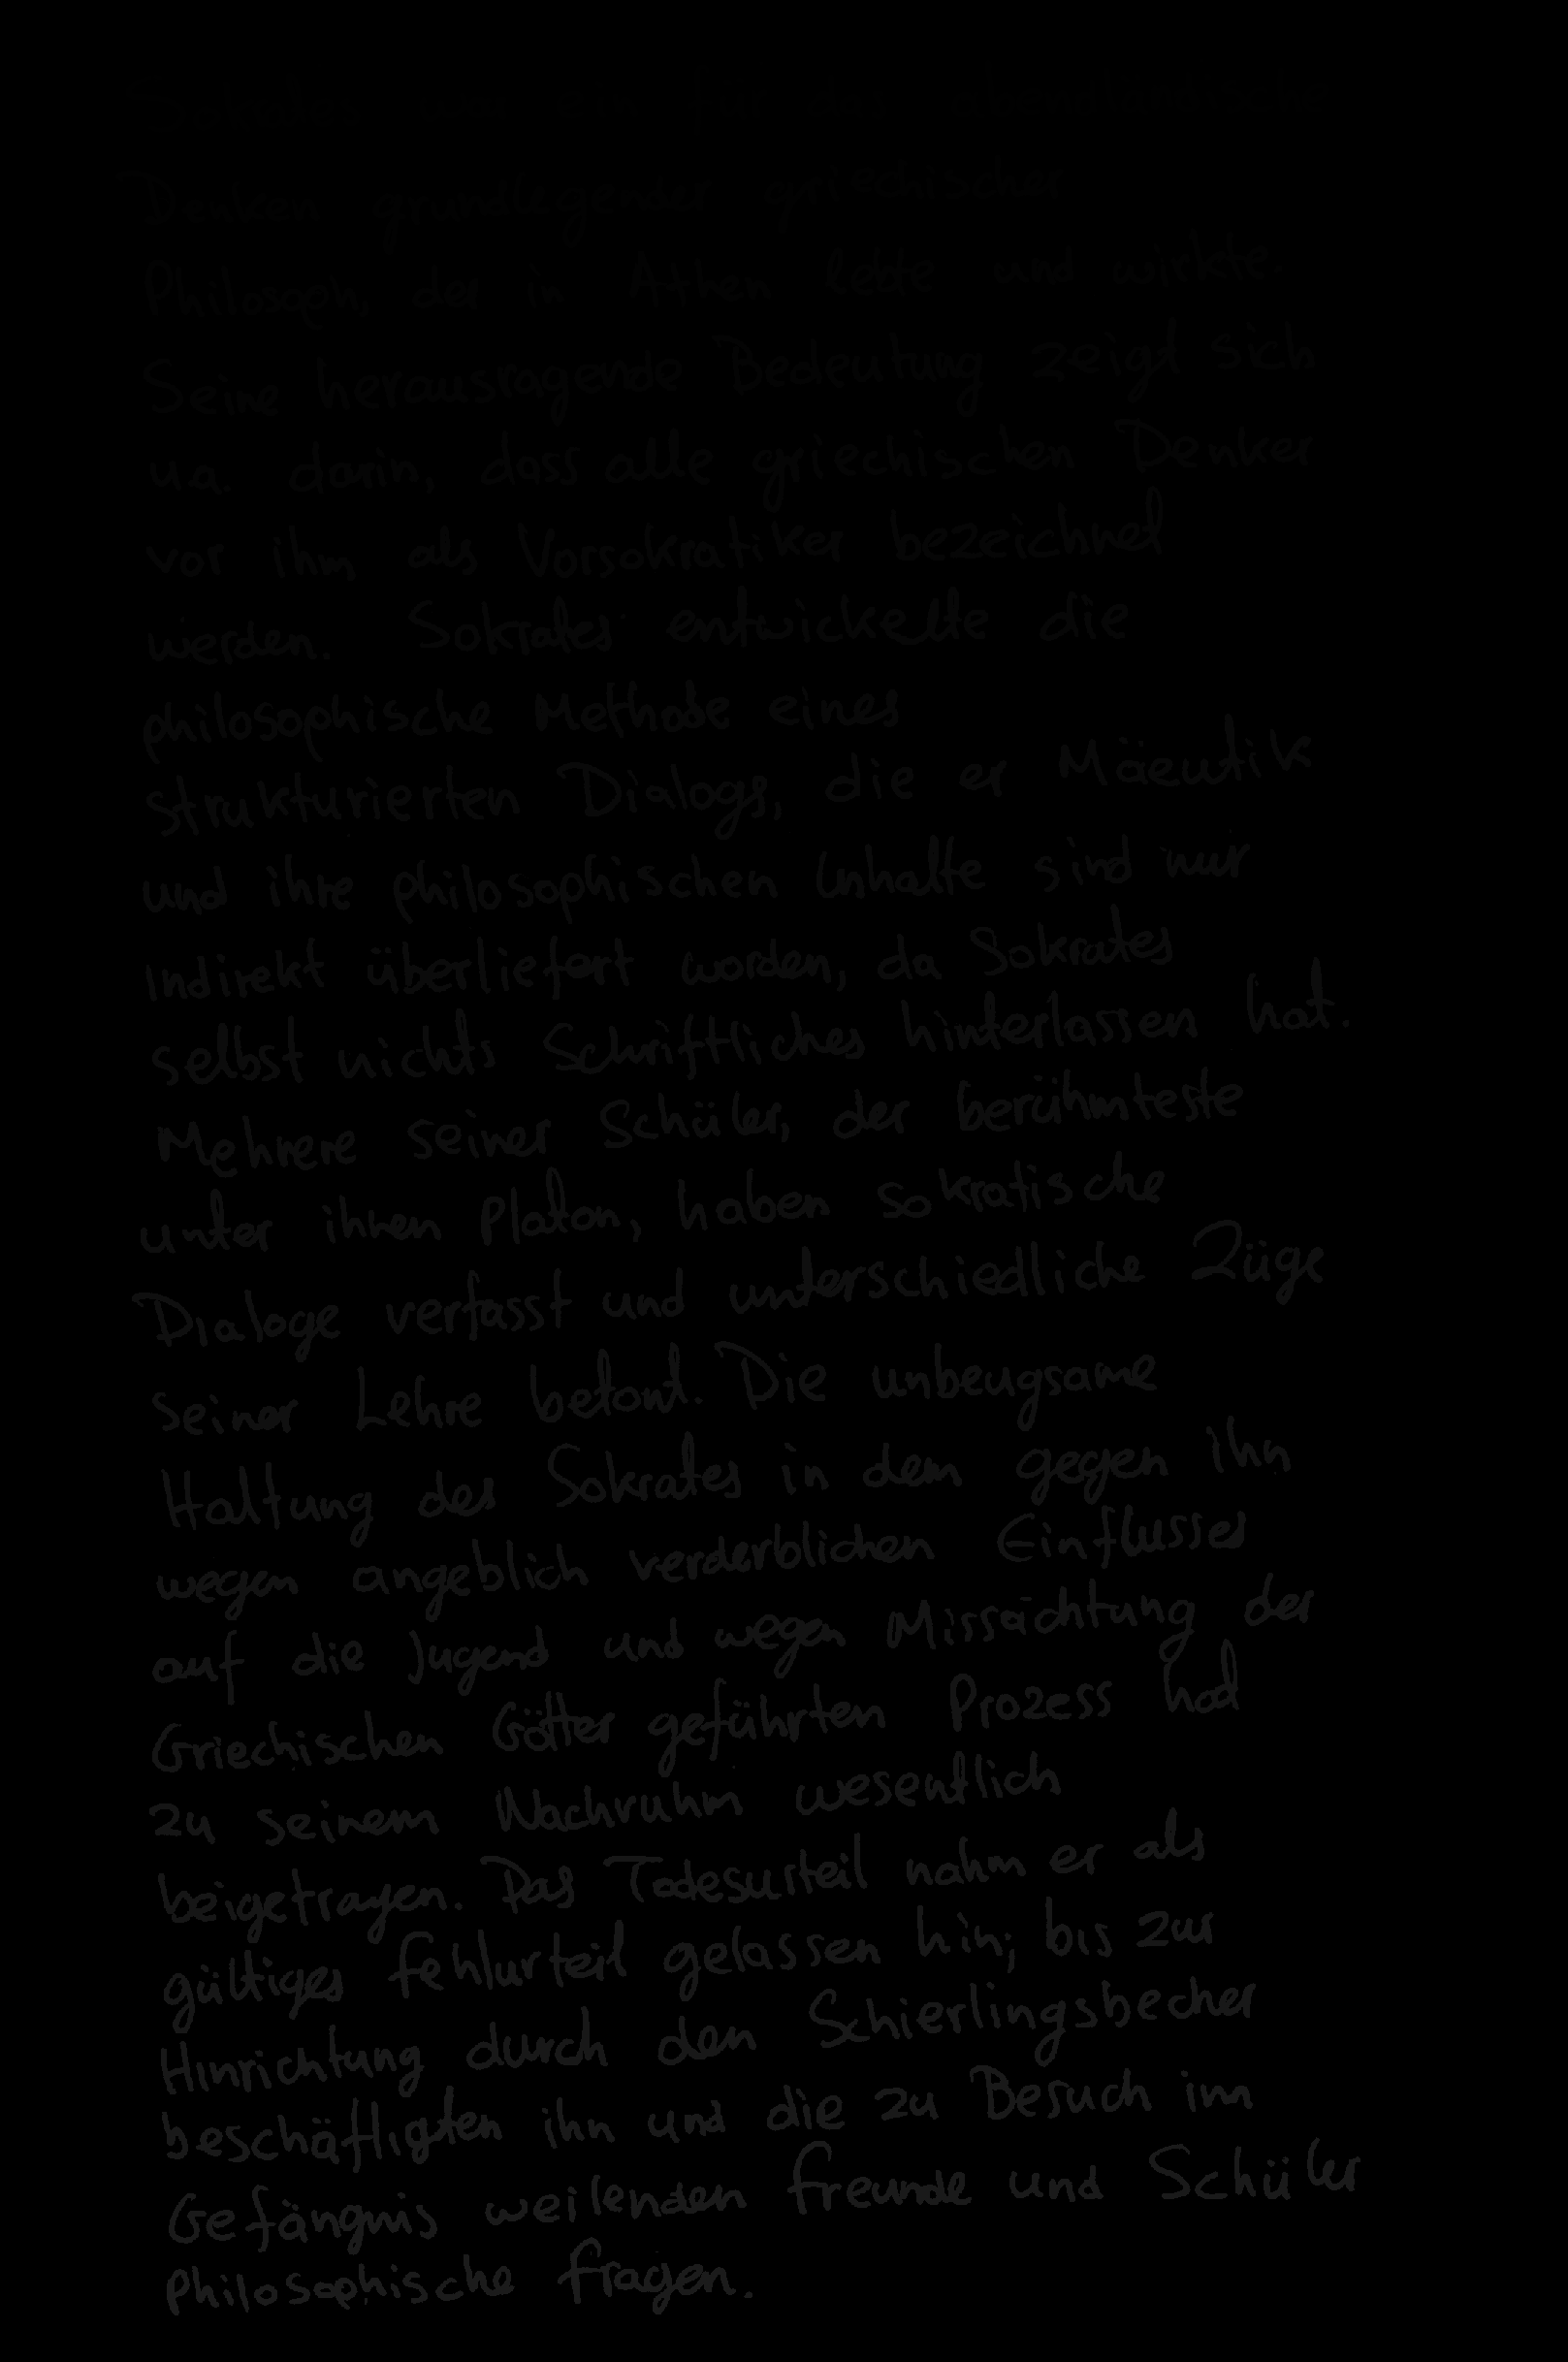 Sokrates war ein für das abendländische
Denken grundlegender griechischer
Philosoph, der in Athen lebte und wirkte.
Seine herausragende Bedeutung zeigt sich
u.a. darin, dass alle griechischen Denker
vor ihm als Vorsokratiker bezeichnet
werden. Sokrates entwickelte die
philosophische Methode eines
strukturierten Dialogs, die er Mäeutik
und ihre philosophischen Inhalte sind nur
indirekt überliefert worden, da Sokrates
selbst nichts Schriftliches hinterlassen hat.
Mehrere seiner Schüler, der berühmteste
unter ihnen Platon, haben sokratische
Dialoge verfasst und unterschiedliche Züge
seiner Lehre betont. Die unbeugsame
Haltung des Sokrates in dem gegen ihn
wegen angeblich verderblichen Einflusses
auf die Jugend und wegen Missachtung der
Griechischen Götter geführten Prozess hat
zu seinem Nachruhm wesentlich
beigetragen. Das Todesurteil nahm er als
gültiges Fehlurteil gelassen hin; bis zur
Hinrichtung durch den Schierlingsbecher
beschäftigten ihn und die zu Besuch im
Gefängnis weilenden Freunde und Schüler
philosophische Fragen.